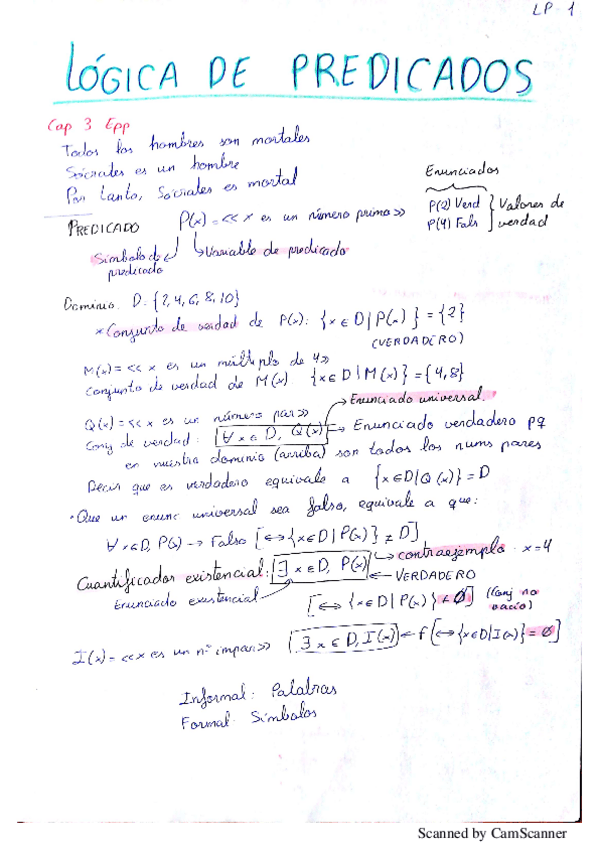 LP-1
LÓGICA DE PREDICADOS
Cap 3 Epp
Todos los hombres son mortales
Sócrates es un hombre
Por tanto, Sócrates es mortal
Enunciados
PREDICADO P(x) = << x es un número primo >> P(2) Verd P(4) Fals } Valores de verdad
Símbolo de predicado
Variable de predicado
Dominio D: {2, 4, 6, 8, 10}
* Conjunto de verdad de P(x): {x ∈ D | P(x)} = {2}
(VERDADERO)
M(x) = << x es un múltiplo de 4 >>
Conjunto de verdad de M(x) {x ∈ D | M(x)} = {4,8}
Enunciado universal.
Q(x) = << x es un número par >>
Conj de verdad: ∀x ∈ D, Q(x) → Enunciado verdadero pq
en nuestro dominio (arriba) son todos los nums pares
Decir que es verdadero equivale a {x∈D|Q(x)} = D
· Que un enunc universal sea falso, equivale a que:
∀x∈D, P(x) → Falso [↔ {x∈D | P(x)} ≠ D]
→ contraejemplo x=4
Cuantificador existencial: ∃ x∈D, P(x)
← VERDADERO
Enunciado existencial
[↔ {x∈D | P(x)} ≠ Ø] (Conj no vacío)
I(x) = << x es un nº impar >> ∃ x ∈ D, I(x) ← f [↔ {x∈D|I(x)} = Ø]
Informal: Palabras
Formal: Símbolos
Scanned by CamScanner